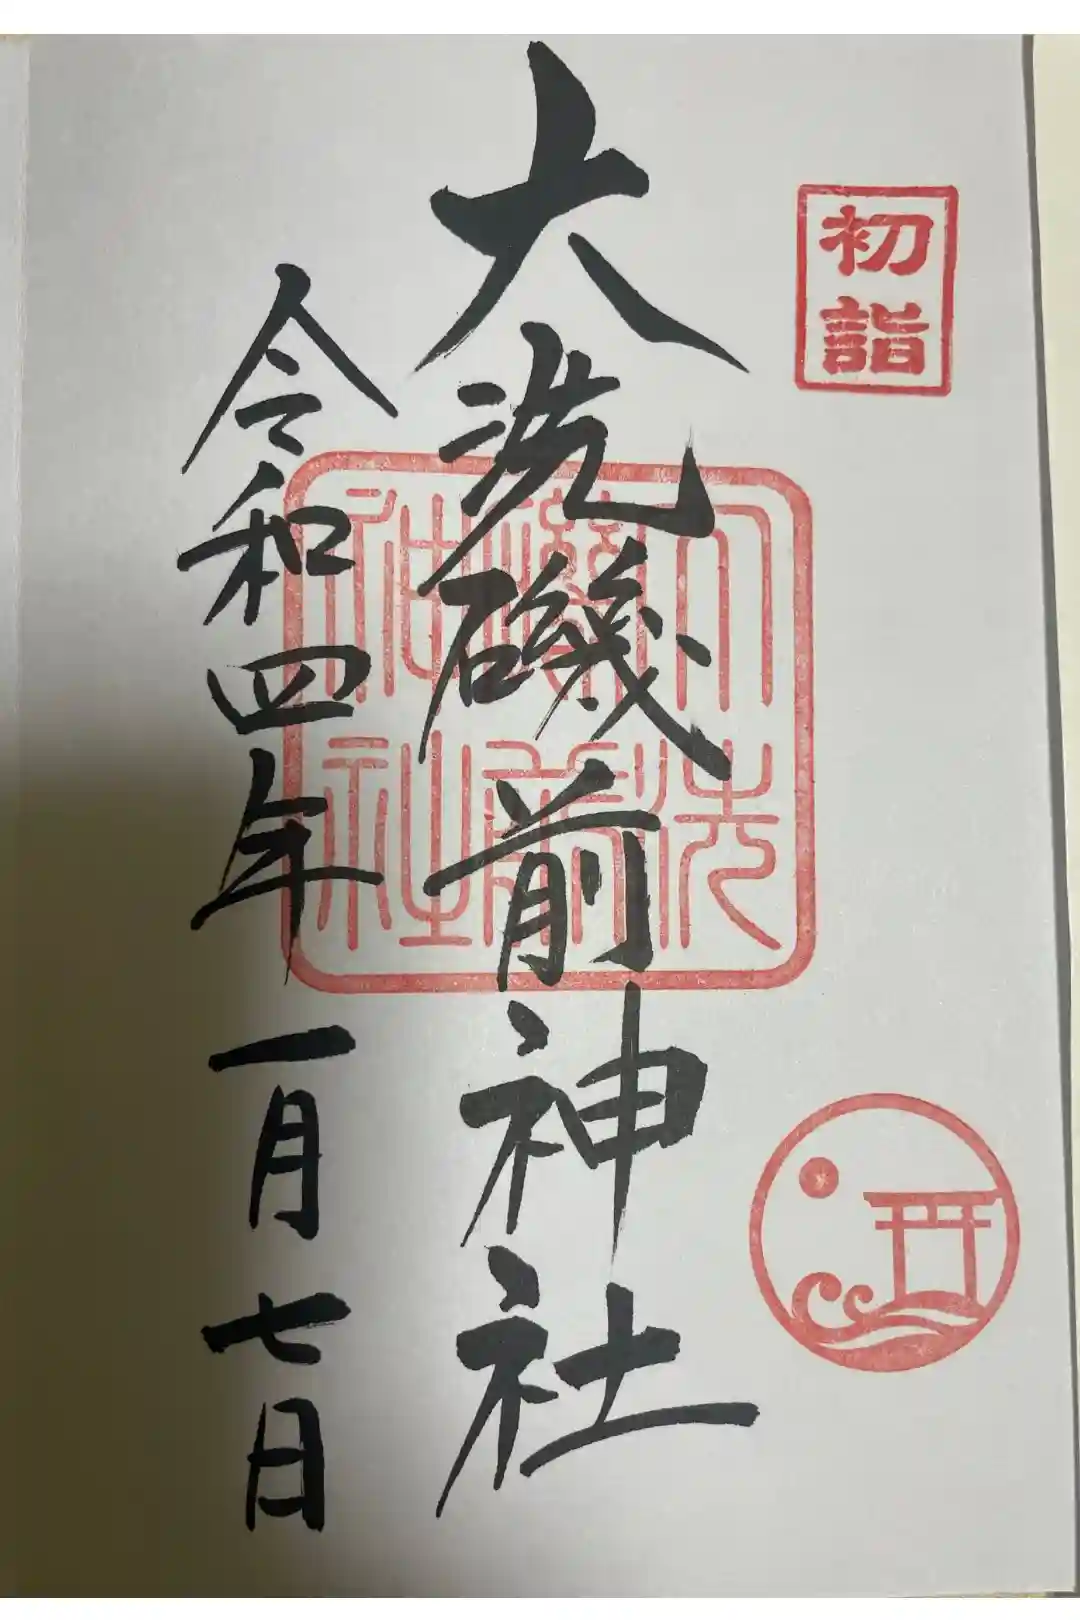 初詣
大洗磯前神社
大洗
磯前
神社
令和四年一月七日